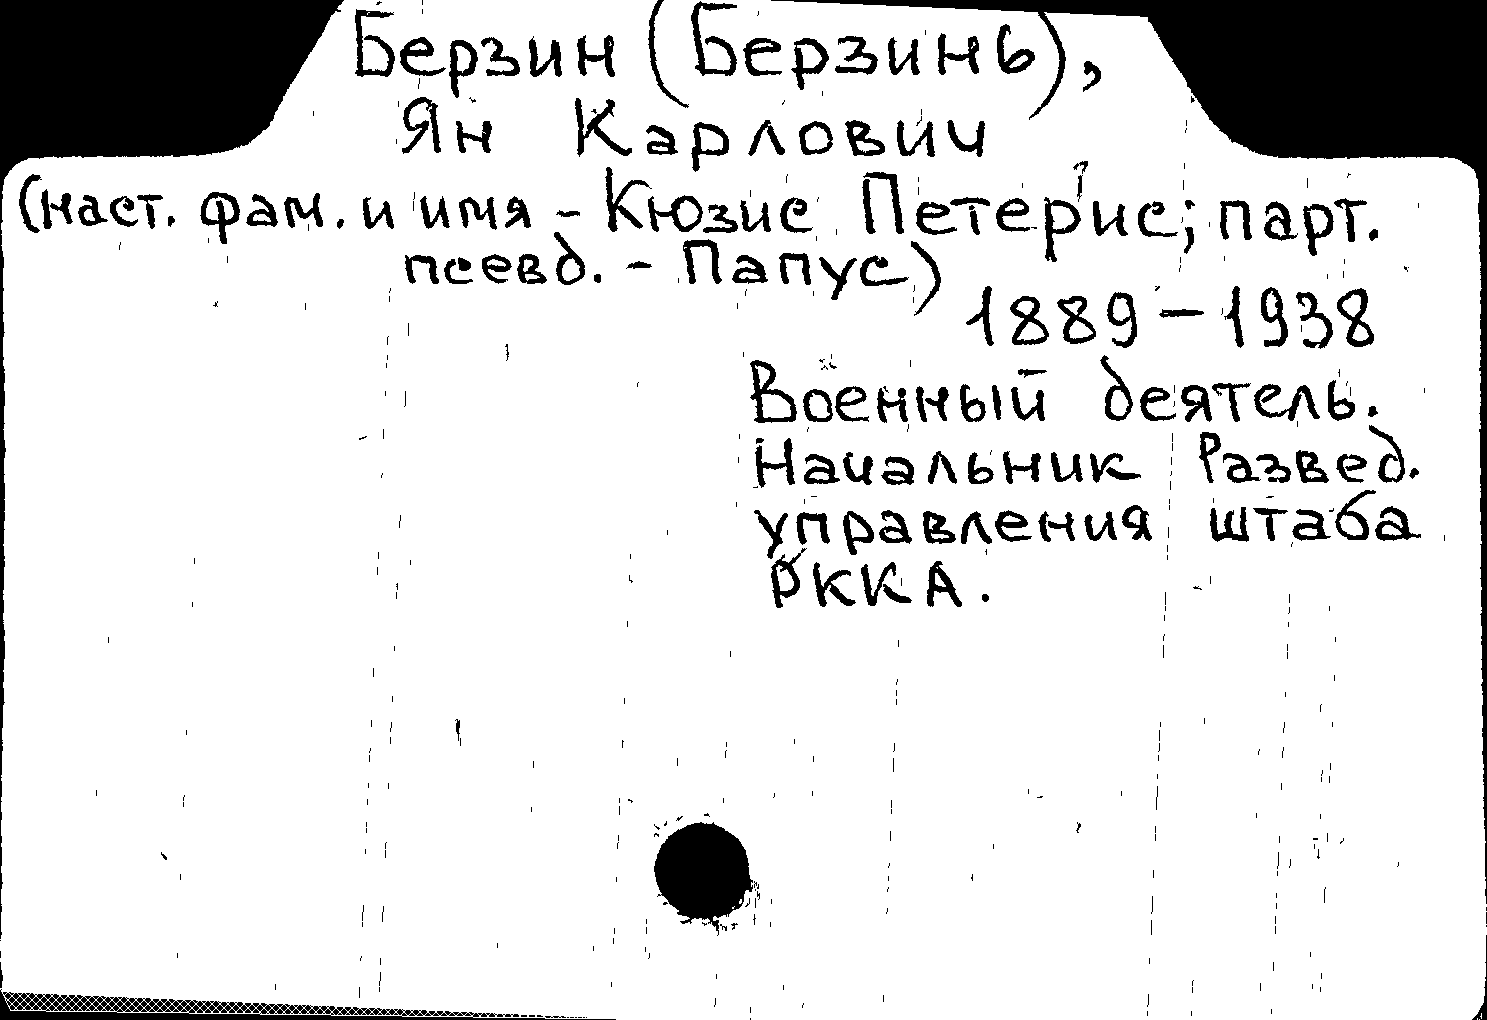 Берзин (Берзинь),
Ян Карлович
(наст. фам. и имя - Кюзис Петерис; парт.
псевд. - Папус)
1889 - 1938
Военный деятель.
Начальник Развед.
управления штаба
РККА.